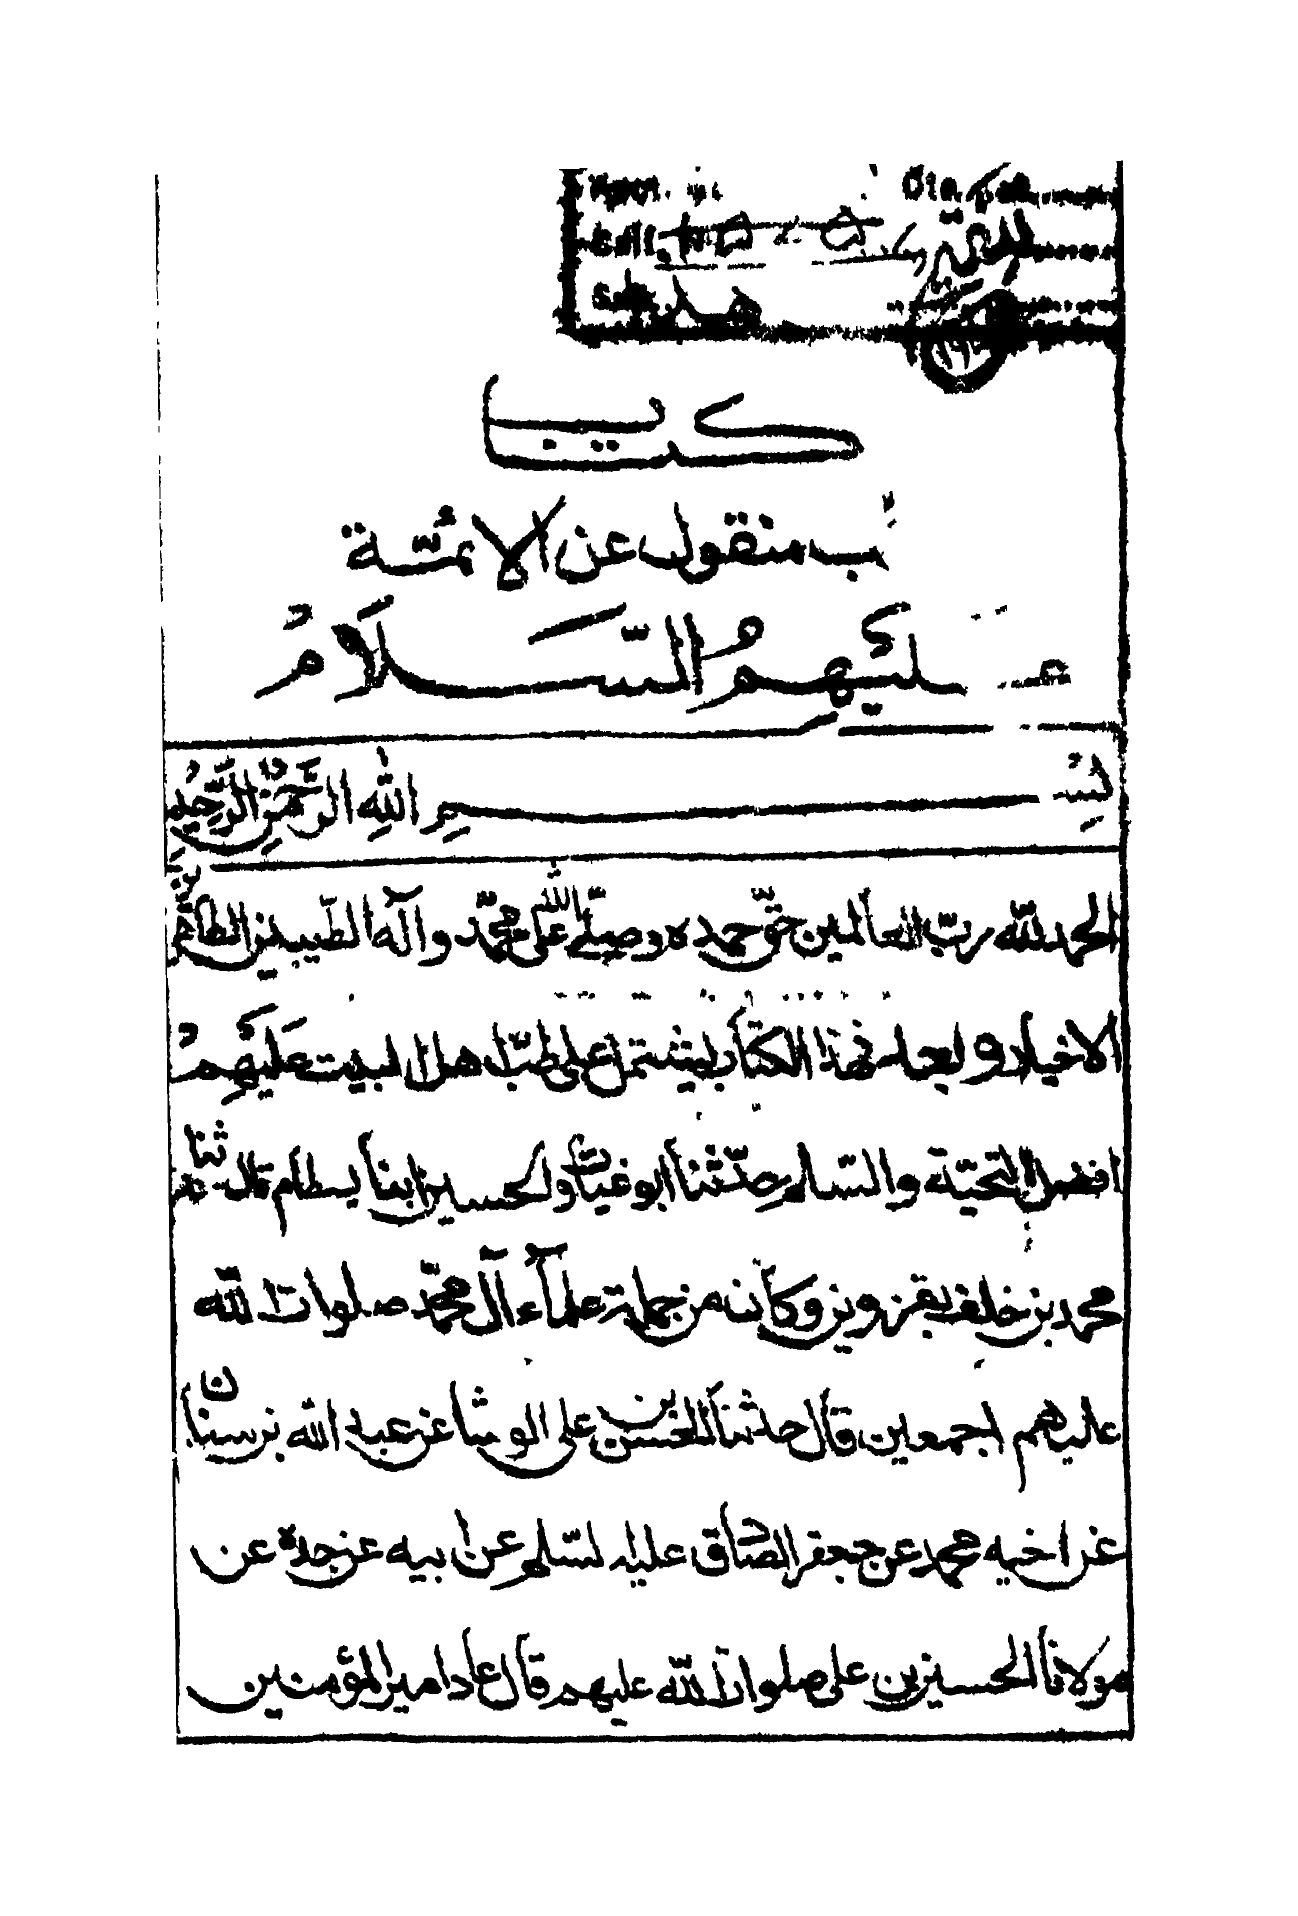 كتاب
طب منقول عن الائمّة
عليهم السّلام
بسم الله الرّحمن الرّحيم
الحمد لله ربّ العالمين حقّ حمده وصلّى الله على محمّد وآله الطّيبين الطاهرين
الاخيار وبعد فهذا الكتاب يشتمل على طبّ اهل البيت عليهم
افضل التحيّة والسّلم حدّثنا ابو عتاب والحسين ابنا بسطام قال حدثنا
محمد بن خلف بقزوين وكان من جملة علماء آل محمّد صلوات الله
عليهم اجمعين قال حدثنا الحسن بن على الوشا عن عبد الله بن سنان
عن اخيه محمد عن جعفر الصادق عليه السّلم عن ابيه عن جده عن
مولانا الحسين بن على صلوات الله عليهم قال عاد امير المؤمنين